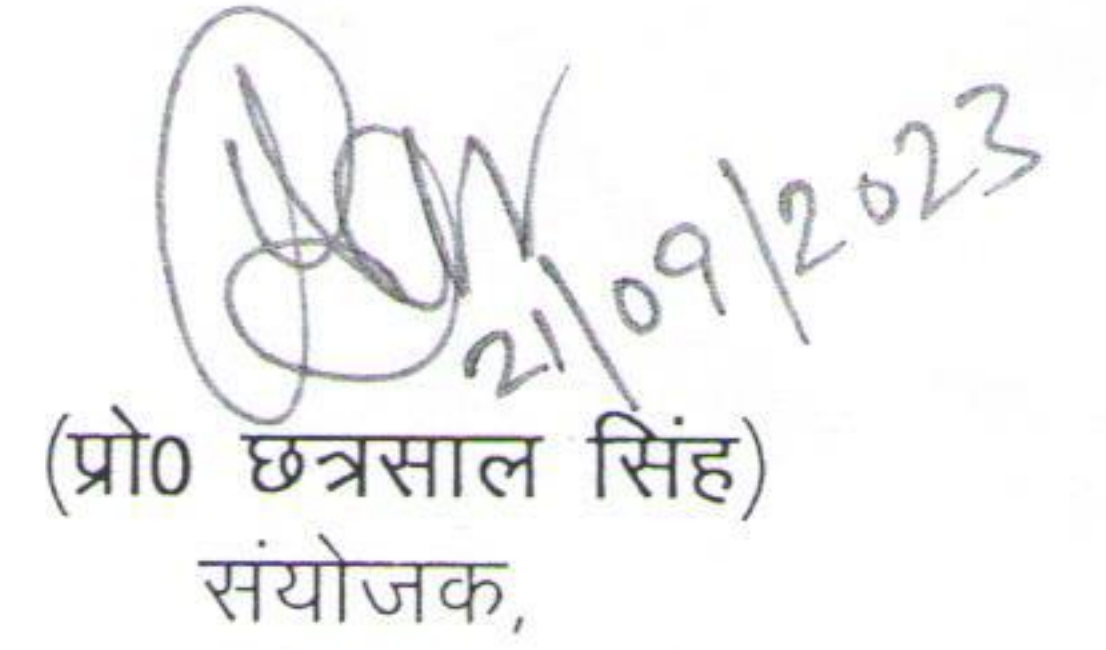 21/09/2023
(प्रो0 छत्रसाल सिंह)
संयोजक,